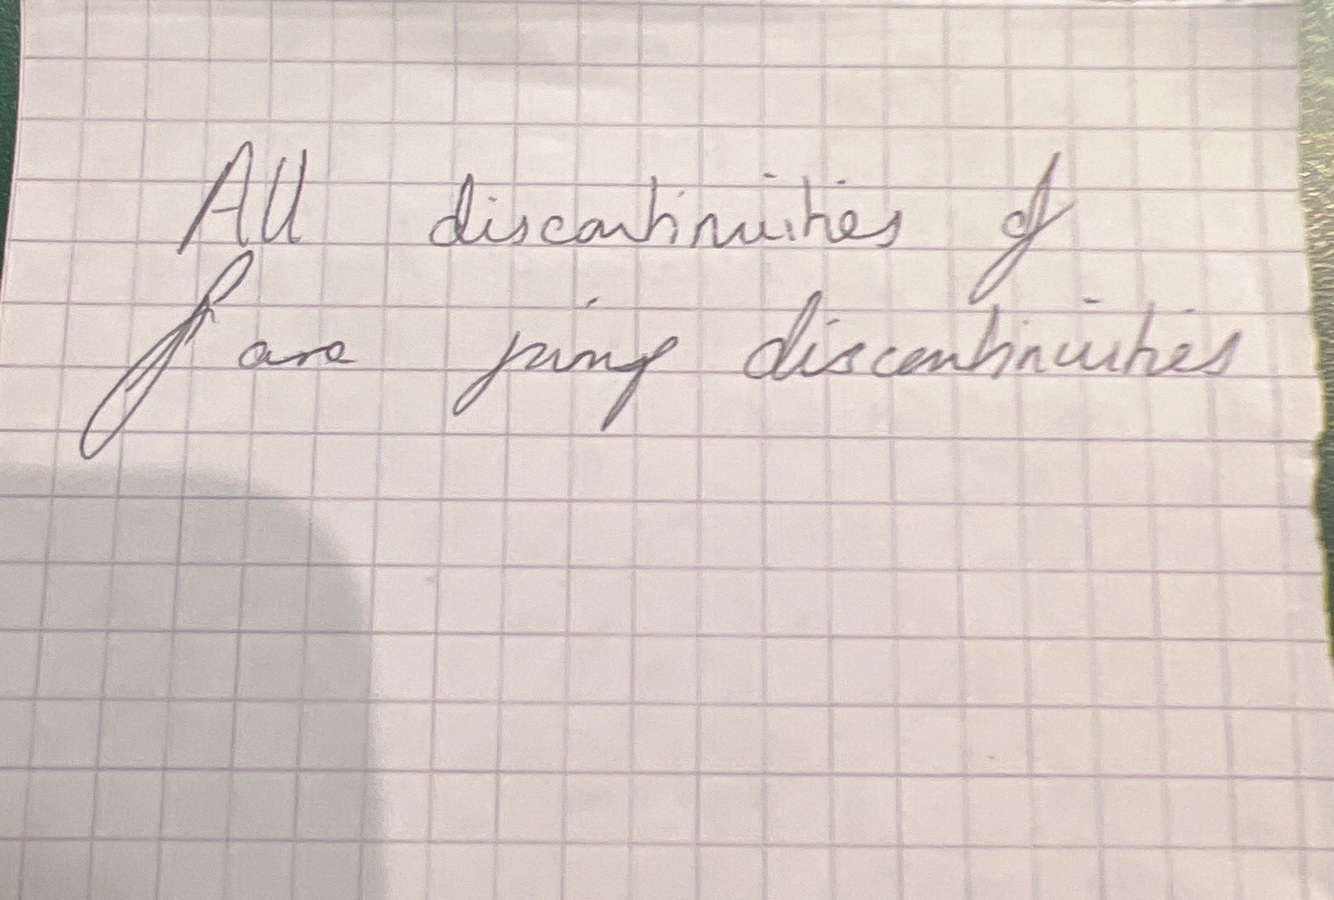 All discontinuities of
f are jump discontinuities